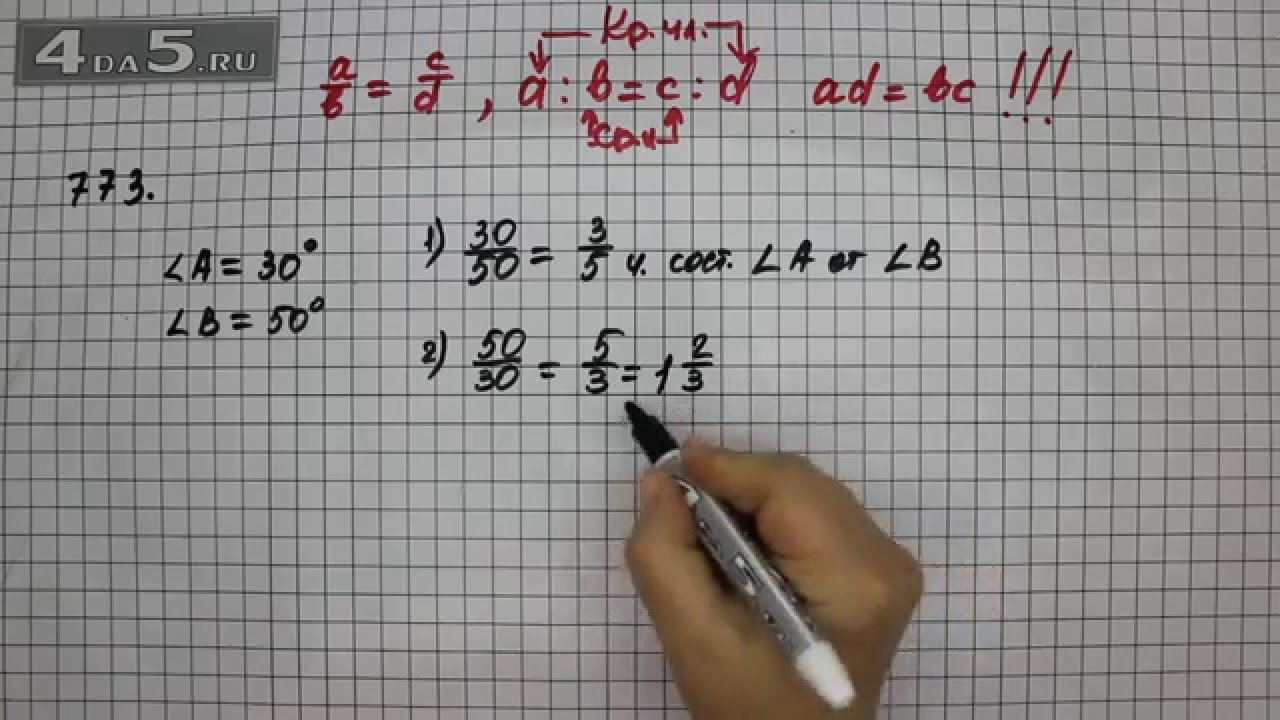 4DA5.RU
Кр. чл.
a/b = c/d , a : b = c : d ad = bc !!!
773.
∠A = 30°
∠B = 50°
1) 30/50 = 3/5 ч. сост. ∠A от ∠B
2) 50/30 = 5/3 = 1 2/3